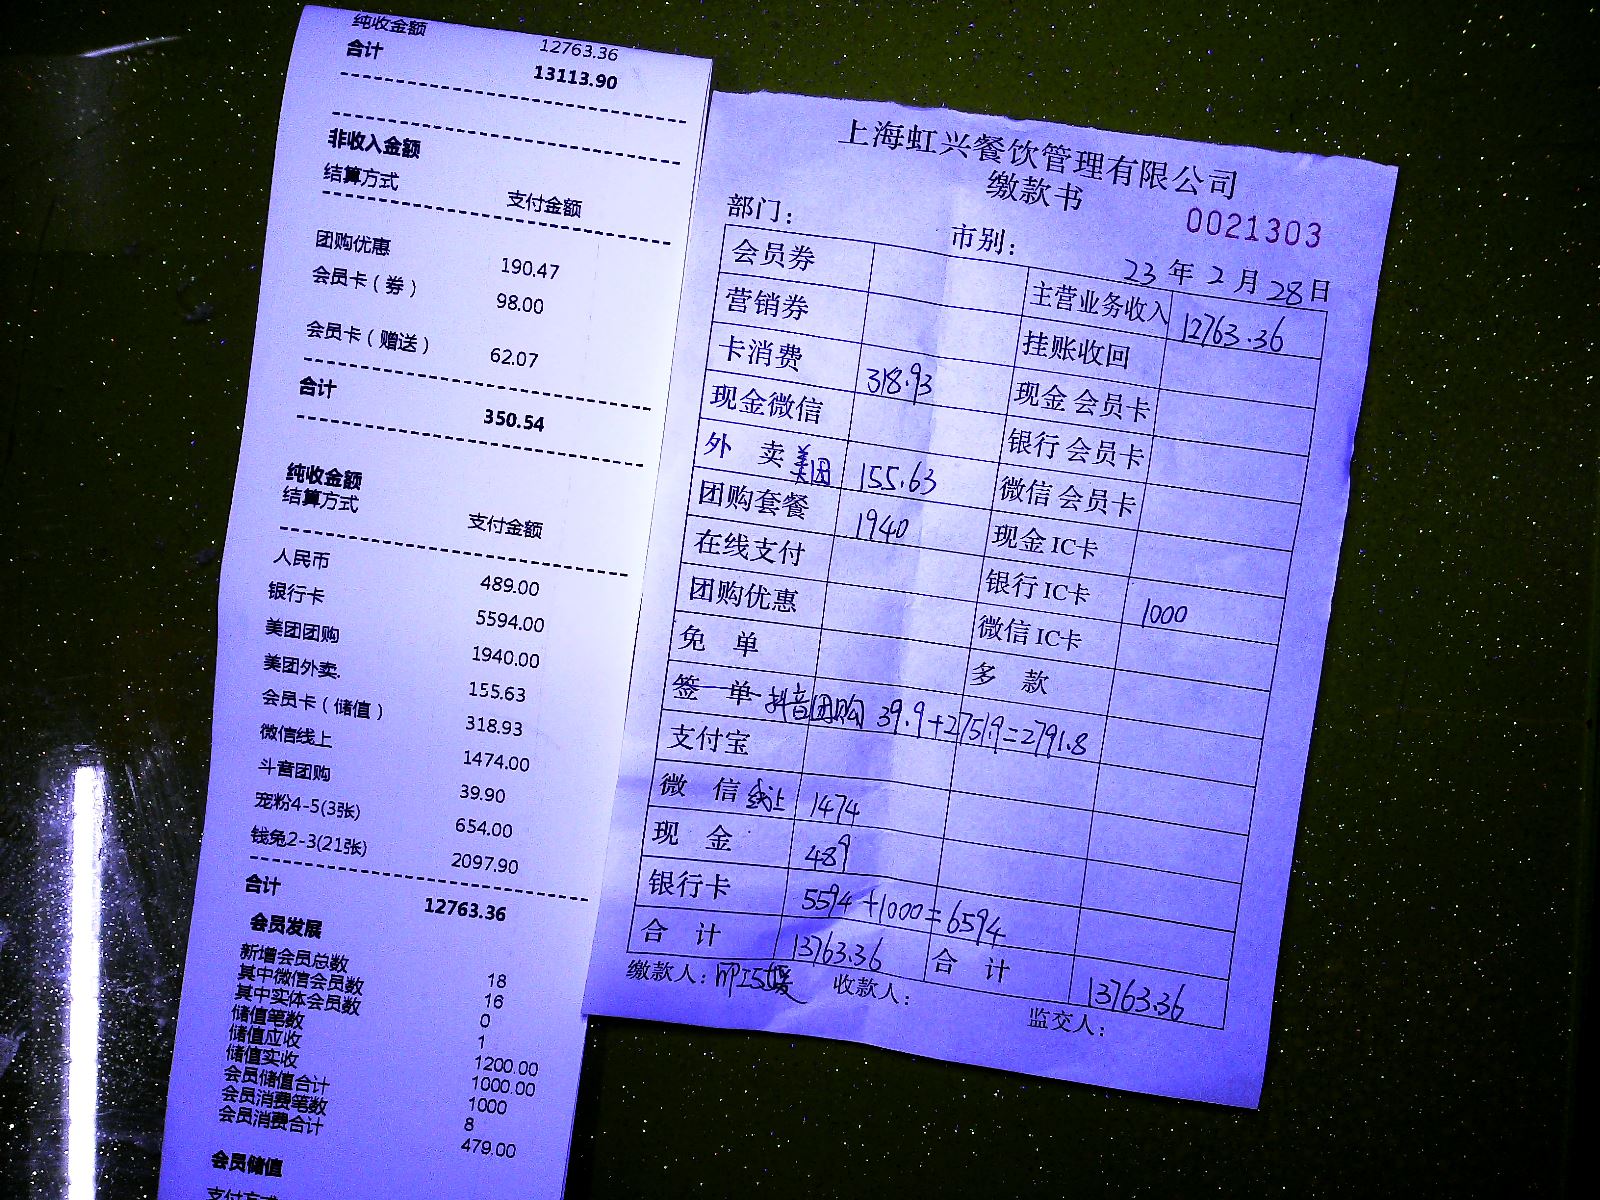 纯收金额 12763.36
合计 13113.90
非收入金额
结算方式 支付金额
团购优惠 190.47
会员卡（券） 98.00
会员卡（赠送） 62.07
合计 350.54
纯收金额
结算方式 支付金额
人民币 489.00
银行卡 5594.00
美团团购 1940.00
美团外卖. 155.63
会员卡（储值） 318.93
微信线上 1474.00
斗音团购 39.90
宠粉4-5(3张) 654.00
钱兔2-3(21张) 2097.90
合计 12763.36
会员发展
新增会员总数 18
其中微信会员数 16
其中实体会员数 0
储值笔数 1
储值应收 1200.00
储值实收 1000.00
会员储值合计 1000
会员消费笔数 8
会员消费合计 479.00
会员储值
支付方式
上海虹兴餐饮管理有限公司
缴款书
0021303
部门： 市别： 23年2月28日
会员券 主营业务收入 12763.36
营销券 挂账收回
卡消费 318.93 现金会员卡
现金微信 银行会员卡
外 卖 美团 155.63 微信会员卡
团购套餐 1940 现金IC卡
在线支付 银行IC卡 1000
团购优惠 微信IC卡
免 单 多 款
签 单 抖音团购 39.9+2751.9=2791.8
支付宝
微 信 线上 1474
现 金 489
银行卡 5594+1000=6594
合 计 13763.36 合 计 13763.36
缴款人： 收款人： 监交人：